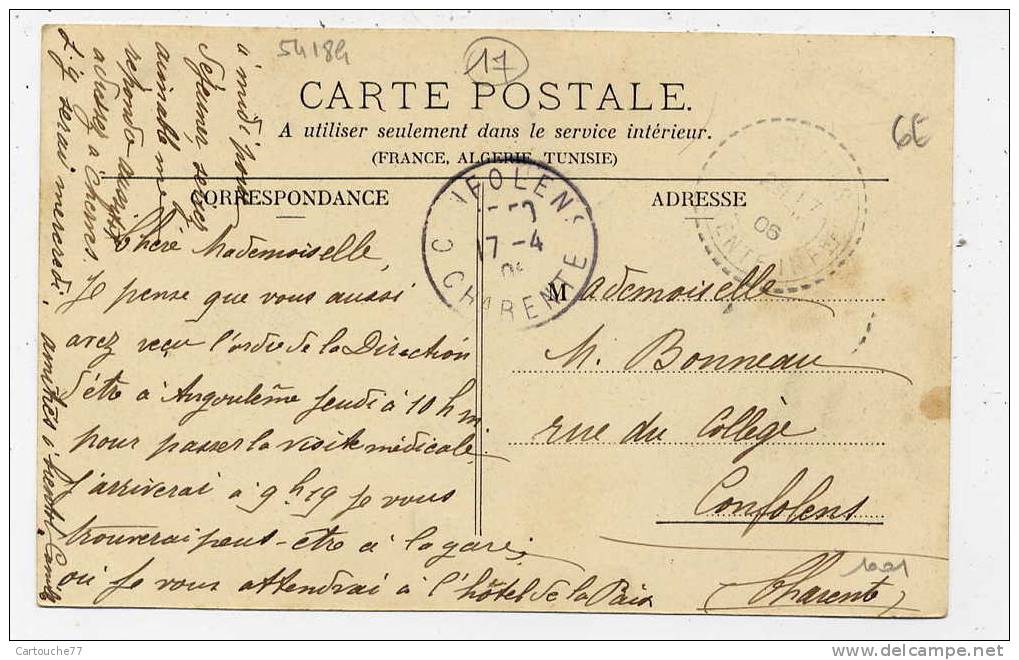 54184
17
6E
CARTE POSTALE.
A utiliser seulement dans le service intérieur.
(FRANCE, ALGERIE, TUNISIE)
CORRESPONDANCE
ADRESSE
CHARENTE
17 - 4
06
Chère Mademoiselle,
Je pense que vous aussi
avez reçu l'ordre de la Direction
d'être à Angoulême jeudi à 10 h m.
pour passer la visite médicale.
J'arriverai à 9 h 19 je vous
trouverai peut-être à la gare,
où je vous attendrai à l'hôtel de la Paix
à midi pour
déjeuner, seriez
aimable me
répondre
adressez à Cherves.
j'y serai mercredi.
amitiés à bientôt, Camille
Mademoiselle
M. Bonneau
rue du Collège
Confolens
Charente
1021
Cartouche77
www.delcampe.net